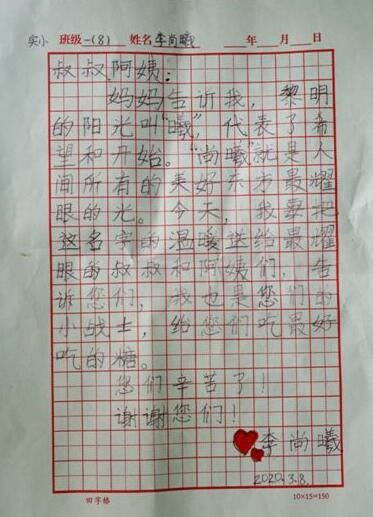 实小 班级一(8) 姓名李尚曦 年 月 日
叔叔、阿姨：
妈妈告诉我，黎明
的阳光叫“曦”，代表了希
望和开始。“尚曦”就是人
间所有的美好东方最耀
眼的光。今天，我要把
这名字的温暖送给最耀
眼的叔叔和阿姨们，告
诉您们，我也是您们的
小战士，给您们吃最好
吃的糖。
您们辛苦了！
谢谢您们！
李尚曦
2020.3.8.
田字格 10×15=150